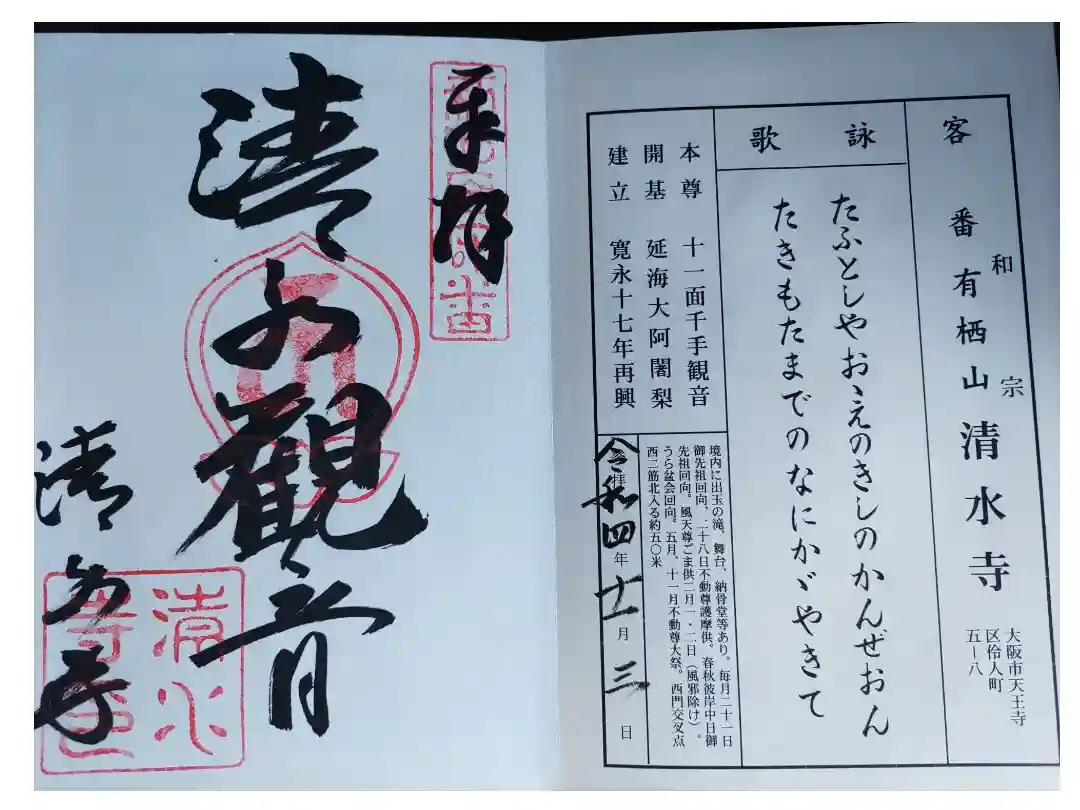 客番
和宗
有栖山清水寺
大阪市天王寺
区伶人町
五ー八
詠歌
たふとしやおゝえのきしのかんぜおん
たきもたまでのなにかゞやきて
本尊 十一面千手観音
開基 延海大阿闍梨
建立 寛永十七年再興
境内に出玉の滝、舞台、納骨堂等あり。毎月二十一日
御先祖回向、二十八日不動尊護摩供。春秋彼岸中日御
先祖回向。風天尊ごま供二月一・二日(風邪除け)。
うら盆会回向。五月、十一月不動尊大祭。西門交叉点
西二筋北入る約五〇米
令和四年十一月三日
奉拝
清水観音
清水寺
清水
寺印